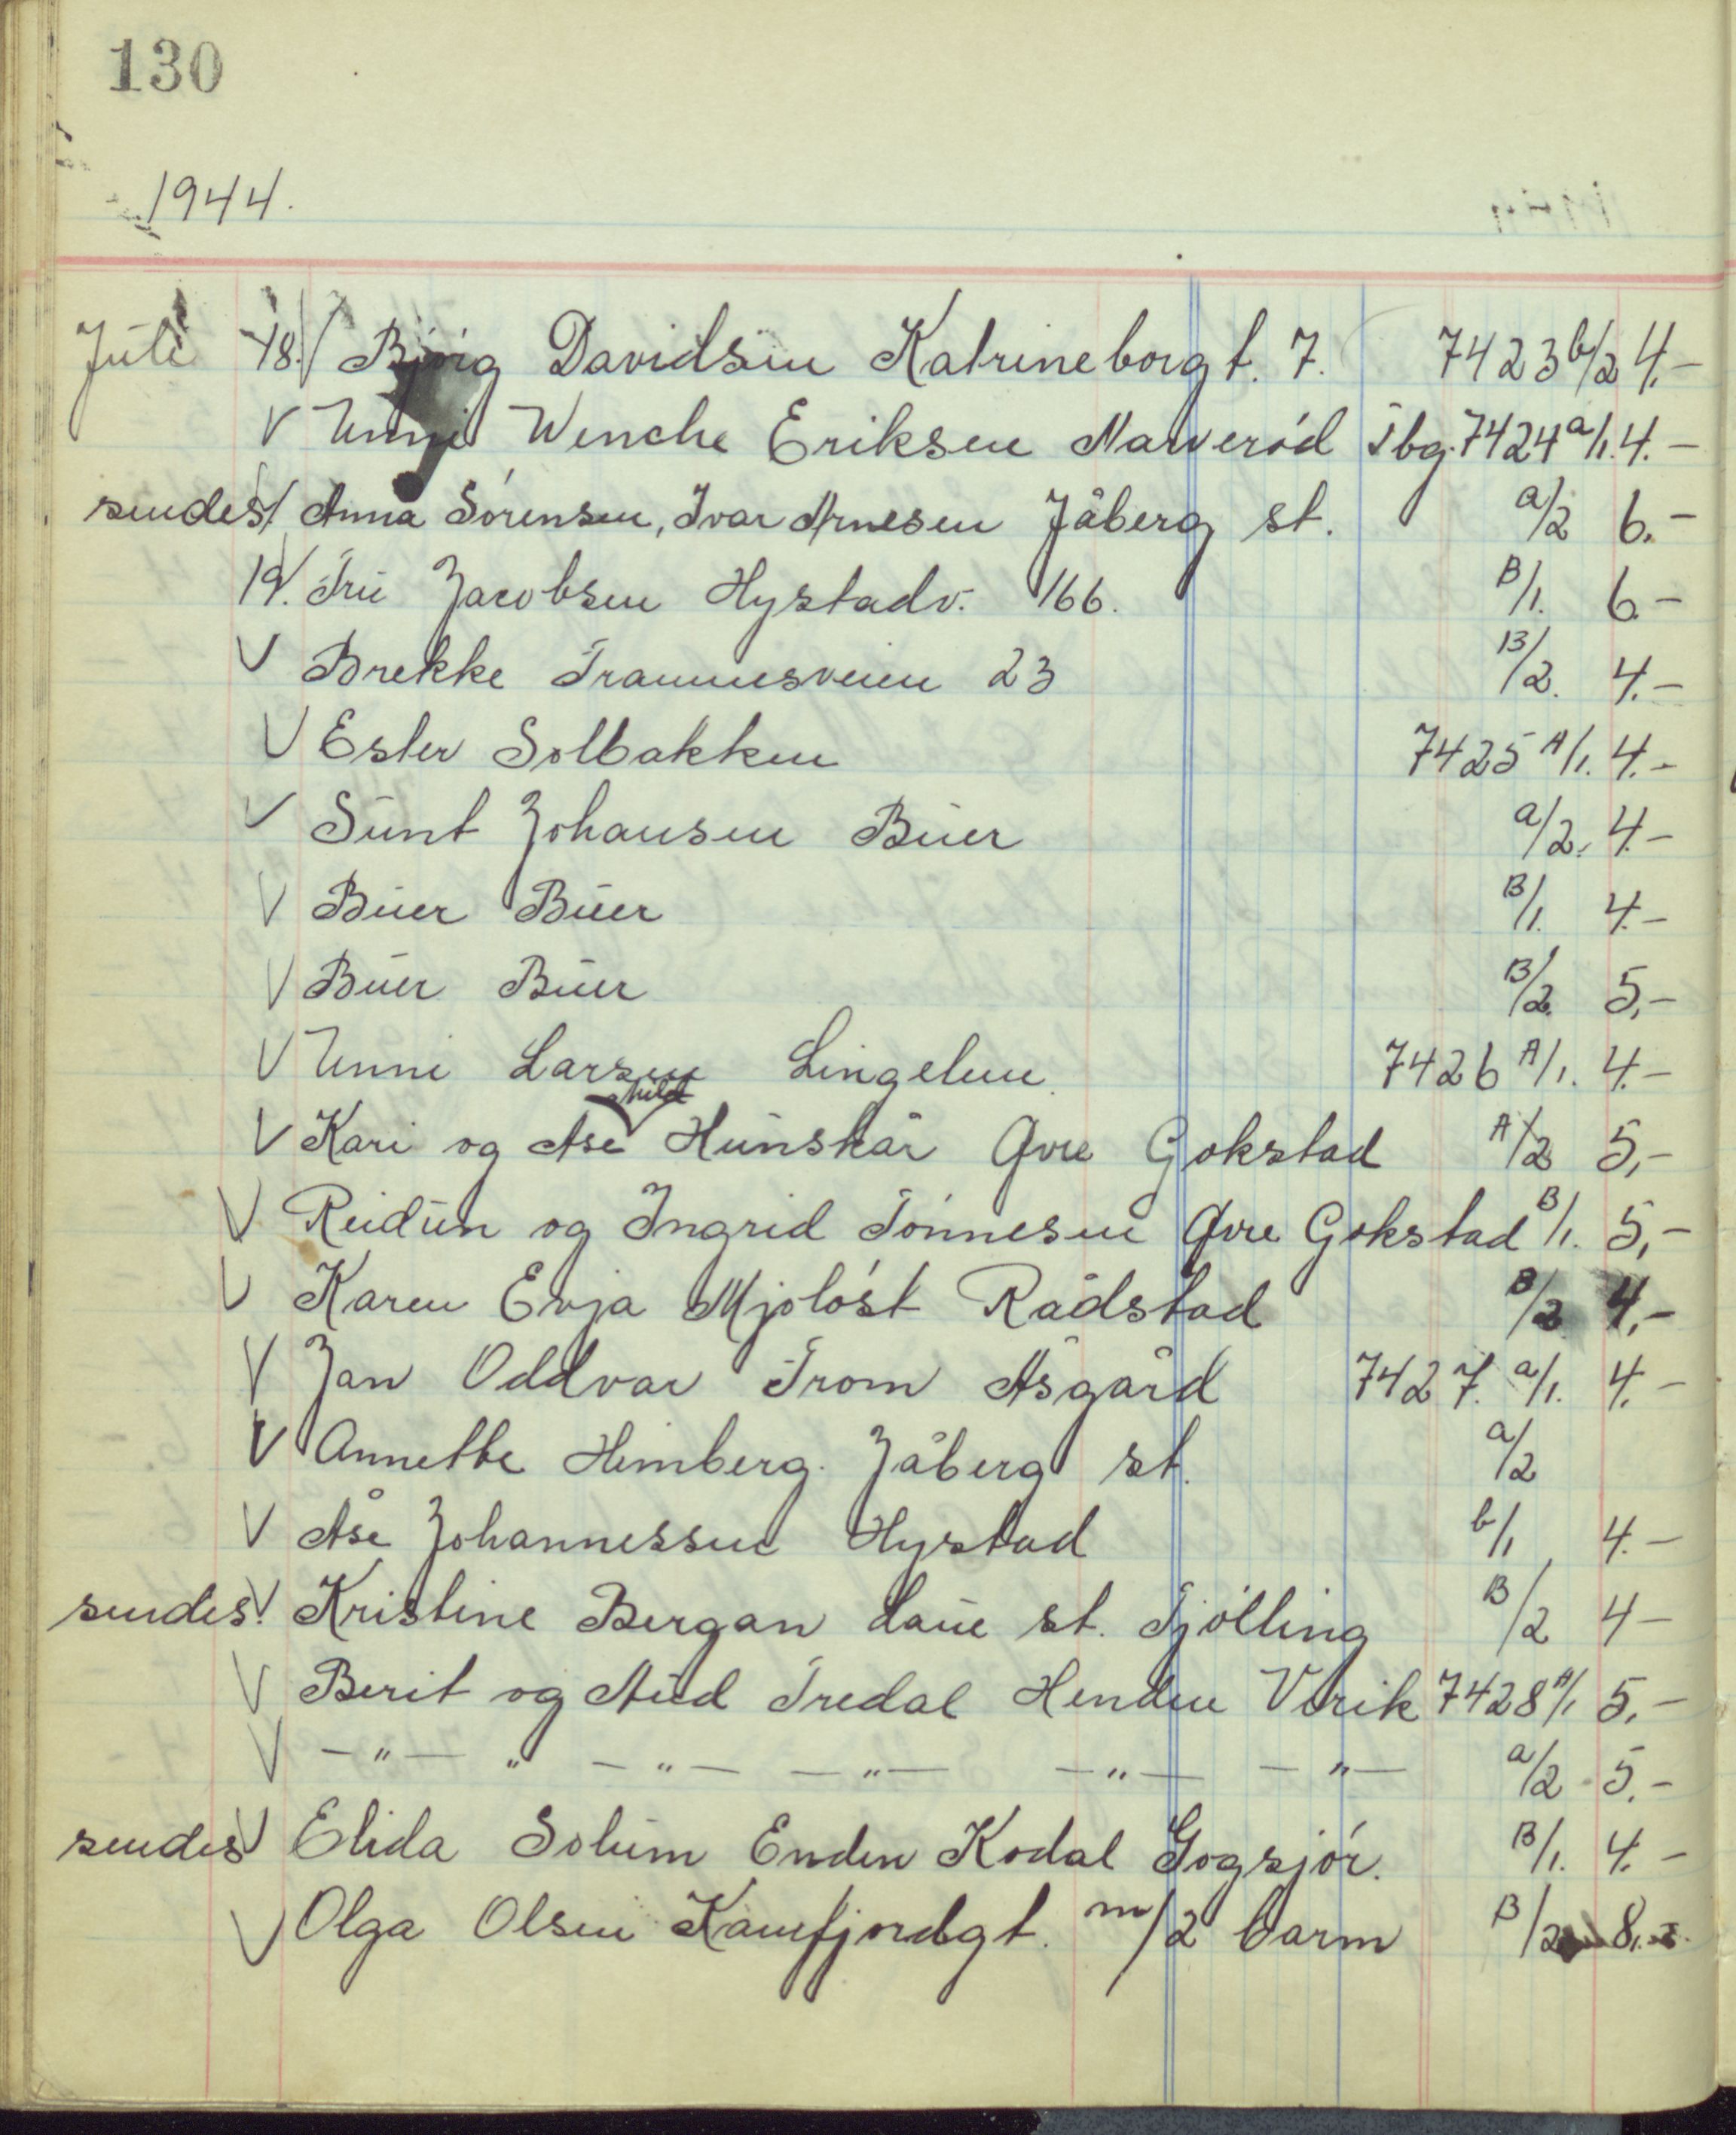 130
1944.
Juli 18. V Bjørg Davidsen Katrineborgt. 7. 7423 b/2 4.-
V Unni Wenche Eriksen Marverød Tbg. 7424 a/1. 4.-
sendes V Anna Sørensen, Ivar Arnesen Jåberg st. a/2 6.-
19. V Fru Jacobsen Hystadv. 166. B/1. 6.-
V Brekke Framnesveien 23 B/2. 4.-
V Ester Solbakken 7425 A/1. 4.-
V Sunt Johansen Buer a/2. 4.-
V Buer Buer B/1. 4.-
V Buer Buer B/2. 5,-
V Unni Larsen Lingelem 7426 A/1. 4.-
V Kari og Åse hild Hunskår Øvre Gokstad A/2 5,-
V Reidun og Ingrid Tønnesen Øvre Gokstad B/1. 5,-
V Karen Evja Mjøløst Rådstad B/2 4,-
V Jan Oddvar From Åsgård 7427. a/1. 4.-
V Annette Himberg. Jåberg st. a/2
V Åse Johannessen Hystad b/1 4.-
sendes. V Kristine Bergan Laue st. Tjølling B/2 4-
V Berit og Aud Tredal Henden Virik 7428 A/1 5.-
V -"- " -"- -"- -"- -"- a/2 5.-
sendes V Elida Solum Enden Kodal Gogsjør. B/1. 4.-
V Olga Olsen Kamfjordgt. m/2 barm B/2 8.-